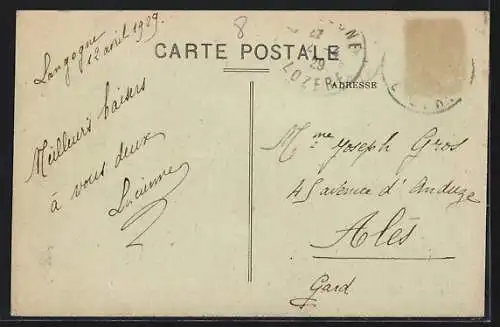 8
CARTE POSTALE
ADRESSE
LOZERE
Langogne
12 avril 1929.
Meilleurs baisers
à vous deux
Lucienne
Mme Joseph Gros
45 avenue d'Anduze
Alès
Gard